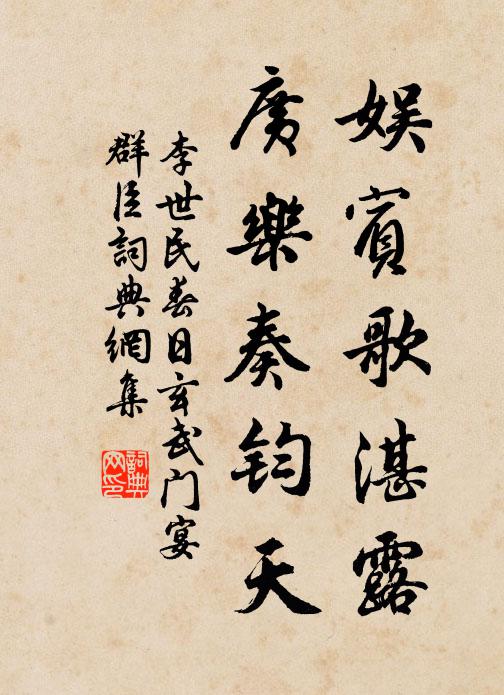 娱賓歌湛露
廣樂奏钧天
李世民春日玄武门宴
群臣詞典網集
詞典网印